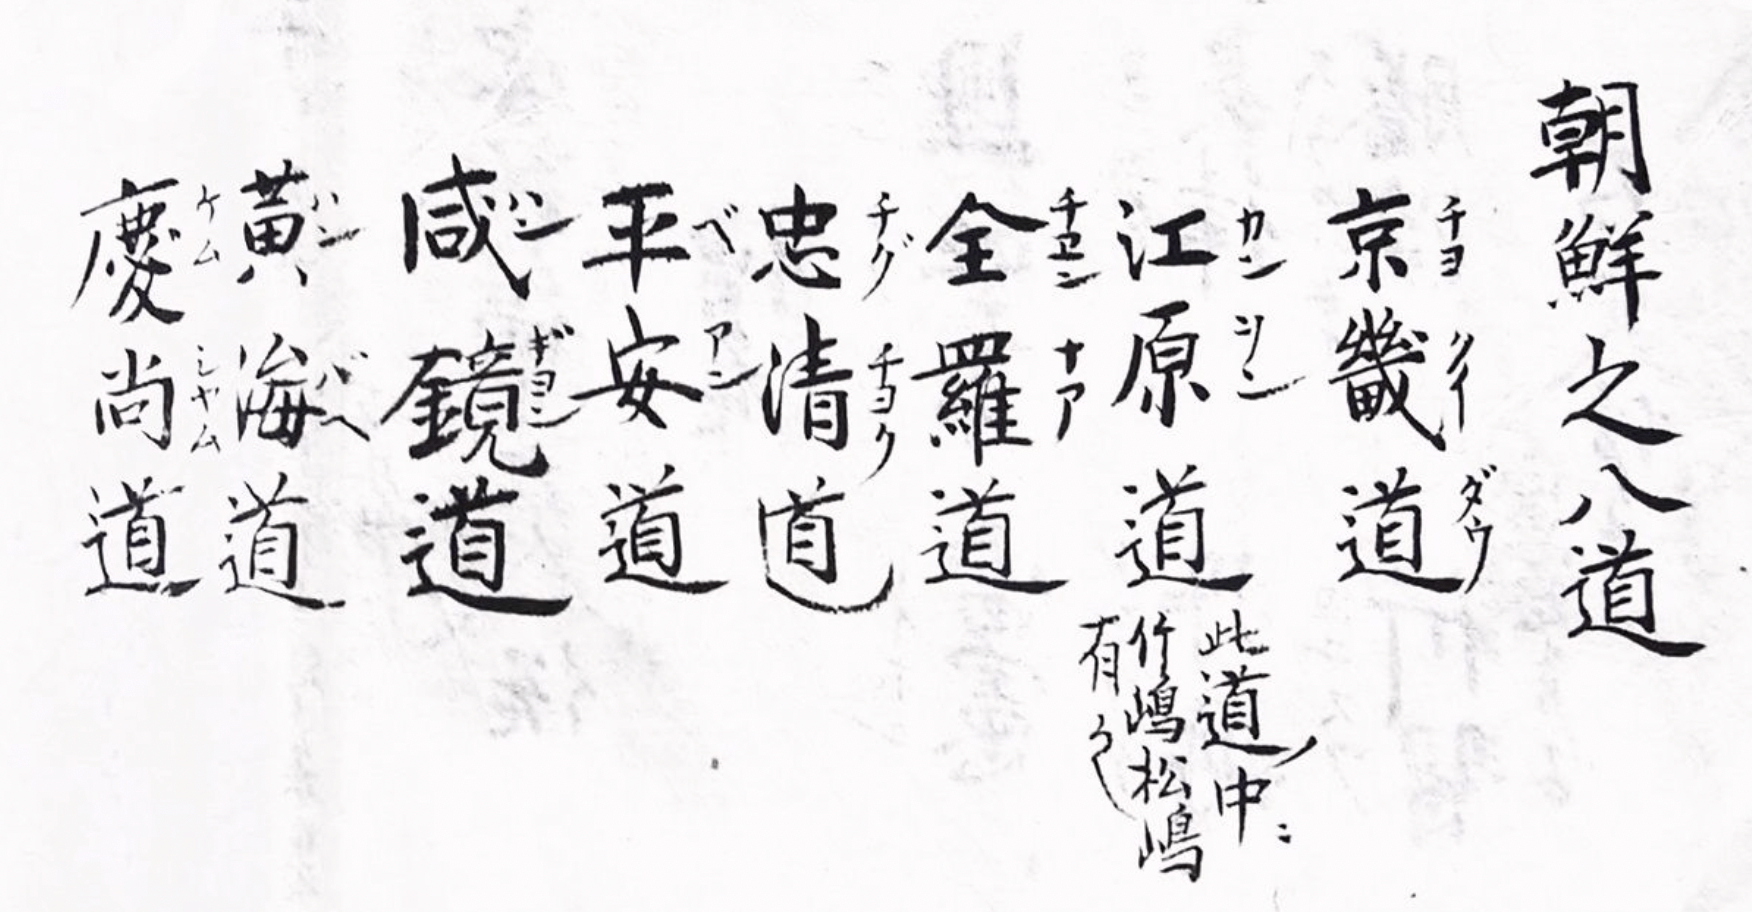 朝鮮之八道
京畿道
チヨ クイ ダウ
江原道
カン ヲン
此道ノ中ニ
竹嶋松嶋
有之
全羅道
チエン ナア
忠清道
チグ チヨク
平安道
ベ アン
咸鏡道
ハン ギヨン
黄海道
ハン バヘ
慶尚道
ケム シヤム